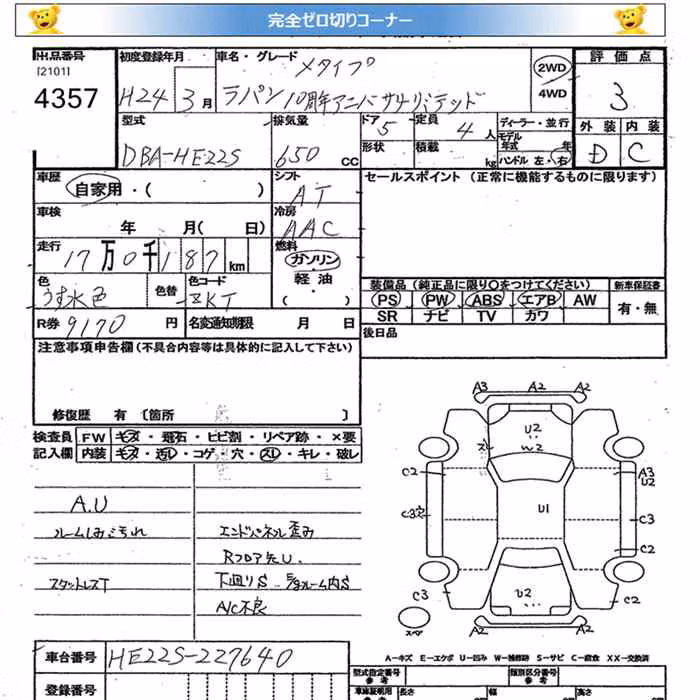 完全ゼロ切りコーナー
出品番号
[2101]
4357
初度登録年月
H24 3月
車名・グレード
メタイプ
ラパン 10周年アニバーサリーリミテッド
2WD
4WD
評価点
3
外装 内装
D C
型式
DBA-HE22S
排気量
650 cc
ドア 5
形状
定員 4人
積載 kg
ディーラー・並行
モデル年式 年
ハンドル 左・右
車歴
自家用・( )
シフト
AT
セールスポイント (正常に機能するものに限ります)
車検
年 月( 日)
冷房
AAC
走行
17万0千187km
燃料
ガソリン
軽油
( )
色
うす水色
色替
色コード
ZKT
装備品 (純正品に限り○をつけてください)
新車保証書
PS PW ABS エアB AW
有・無
SR ナビ TV カワ
R券 9170円
名変通知期限 月 日
後日品
注意事項申告欄 (不具合内容等は具体的に記入して下さい)
修復歴 有 [箇所 ]
検査員 FW キズ・飛石・ヒビ割・リペア跡・×要
記入欄 内装 キズ・汚レ・コゲ・穴・スレ・キレ・破レ
A.U
ルームしみ汚れ
エンドパネル歪み
Rフロア先U.
スタットレスT
下廻りS
ルーム内S
A/C不良
A3 A2 A2
U2
スレ W2
C2
A3
U2
U1
C3
C2
C3
U2
C2
スペア
A2 A2 A2
A-キズ E-エクボ U-凹み W-補修跡 S-サビ C-腐食 XX-交換済
車台番号 HE22S-227640
登録番号
型式指定番号
参考
類別区分番号
参考
車庫証明用
長さ cm 幅 cm 高さ cm